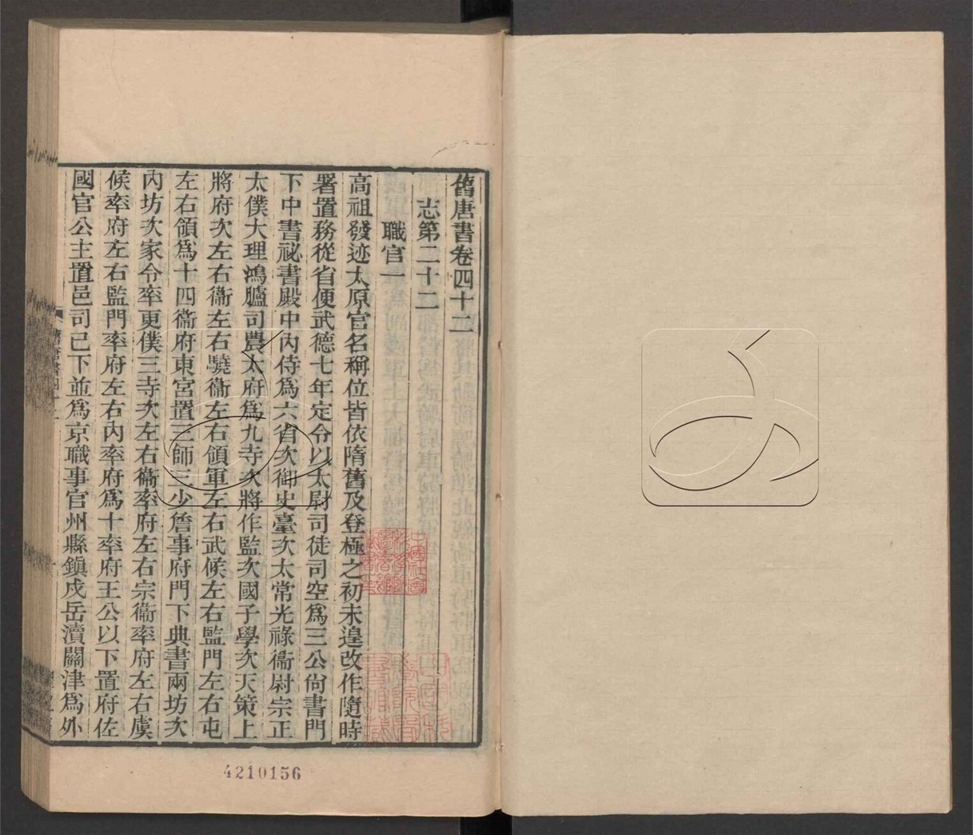 舊唐書卷四十二
志第二十二
職官一
高祖發迹太原官名稱位皆依隋舊及登極之初未遑改作隨時
署置務從省便武德七年定令以太尉司徒司空爲三公尙書門
下中書祕書殿中內侍爲六省次御史臺次太常光祿衞尉宗正
太僕大理鴻臚司農太府爲九寺次將作監次國子學次天策上
將府次左右衞左右驍衞左右領軍左右武候左右監門左右屯
左右領爲十四衞府東宮置三師三少詹事府門下典書兩坊次
內坊次家令率更僕三寺次左右衞率府左右宗衞率府左右虞
候率府左右監門率府左右內率府爲十率府王公以下置府佐
國官公主置邑司已下並爲京職事官州縣鎭戍岳瀆關津爲外
4210156